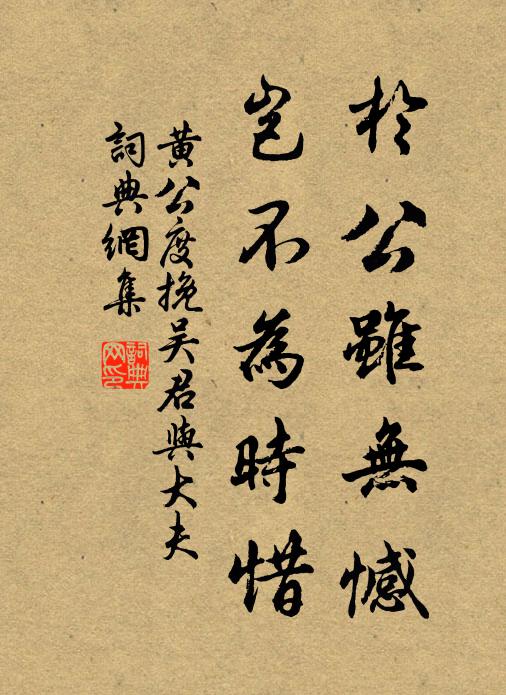 於公雖無憾
豈不為時惜
黃公度挽吳君與大夫
詞典網集
詞典網印